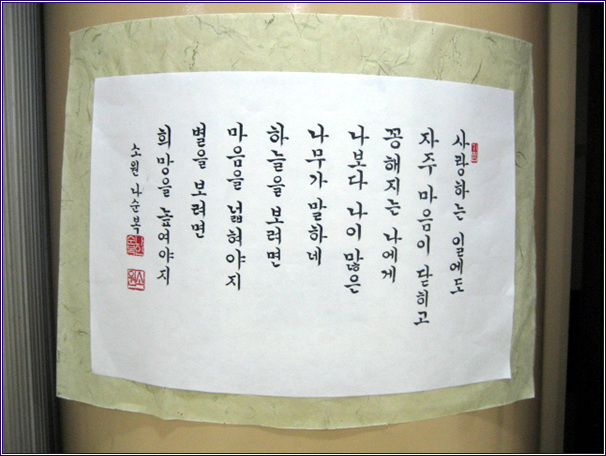 사랑하는 일에도
자주 마음이 닫히고
꽁해지는 나에게
나보다 나이 많은
나무가 말하네
하늘을 보려면
마음을 넓혀야지
별을 보려면
희망을 높여야지
소원 나순복